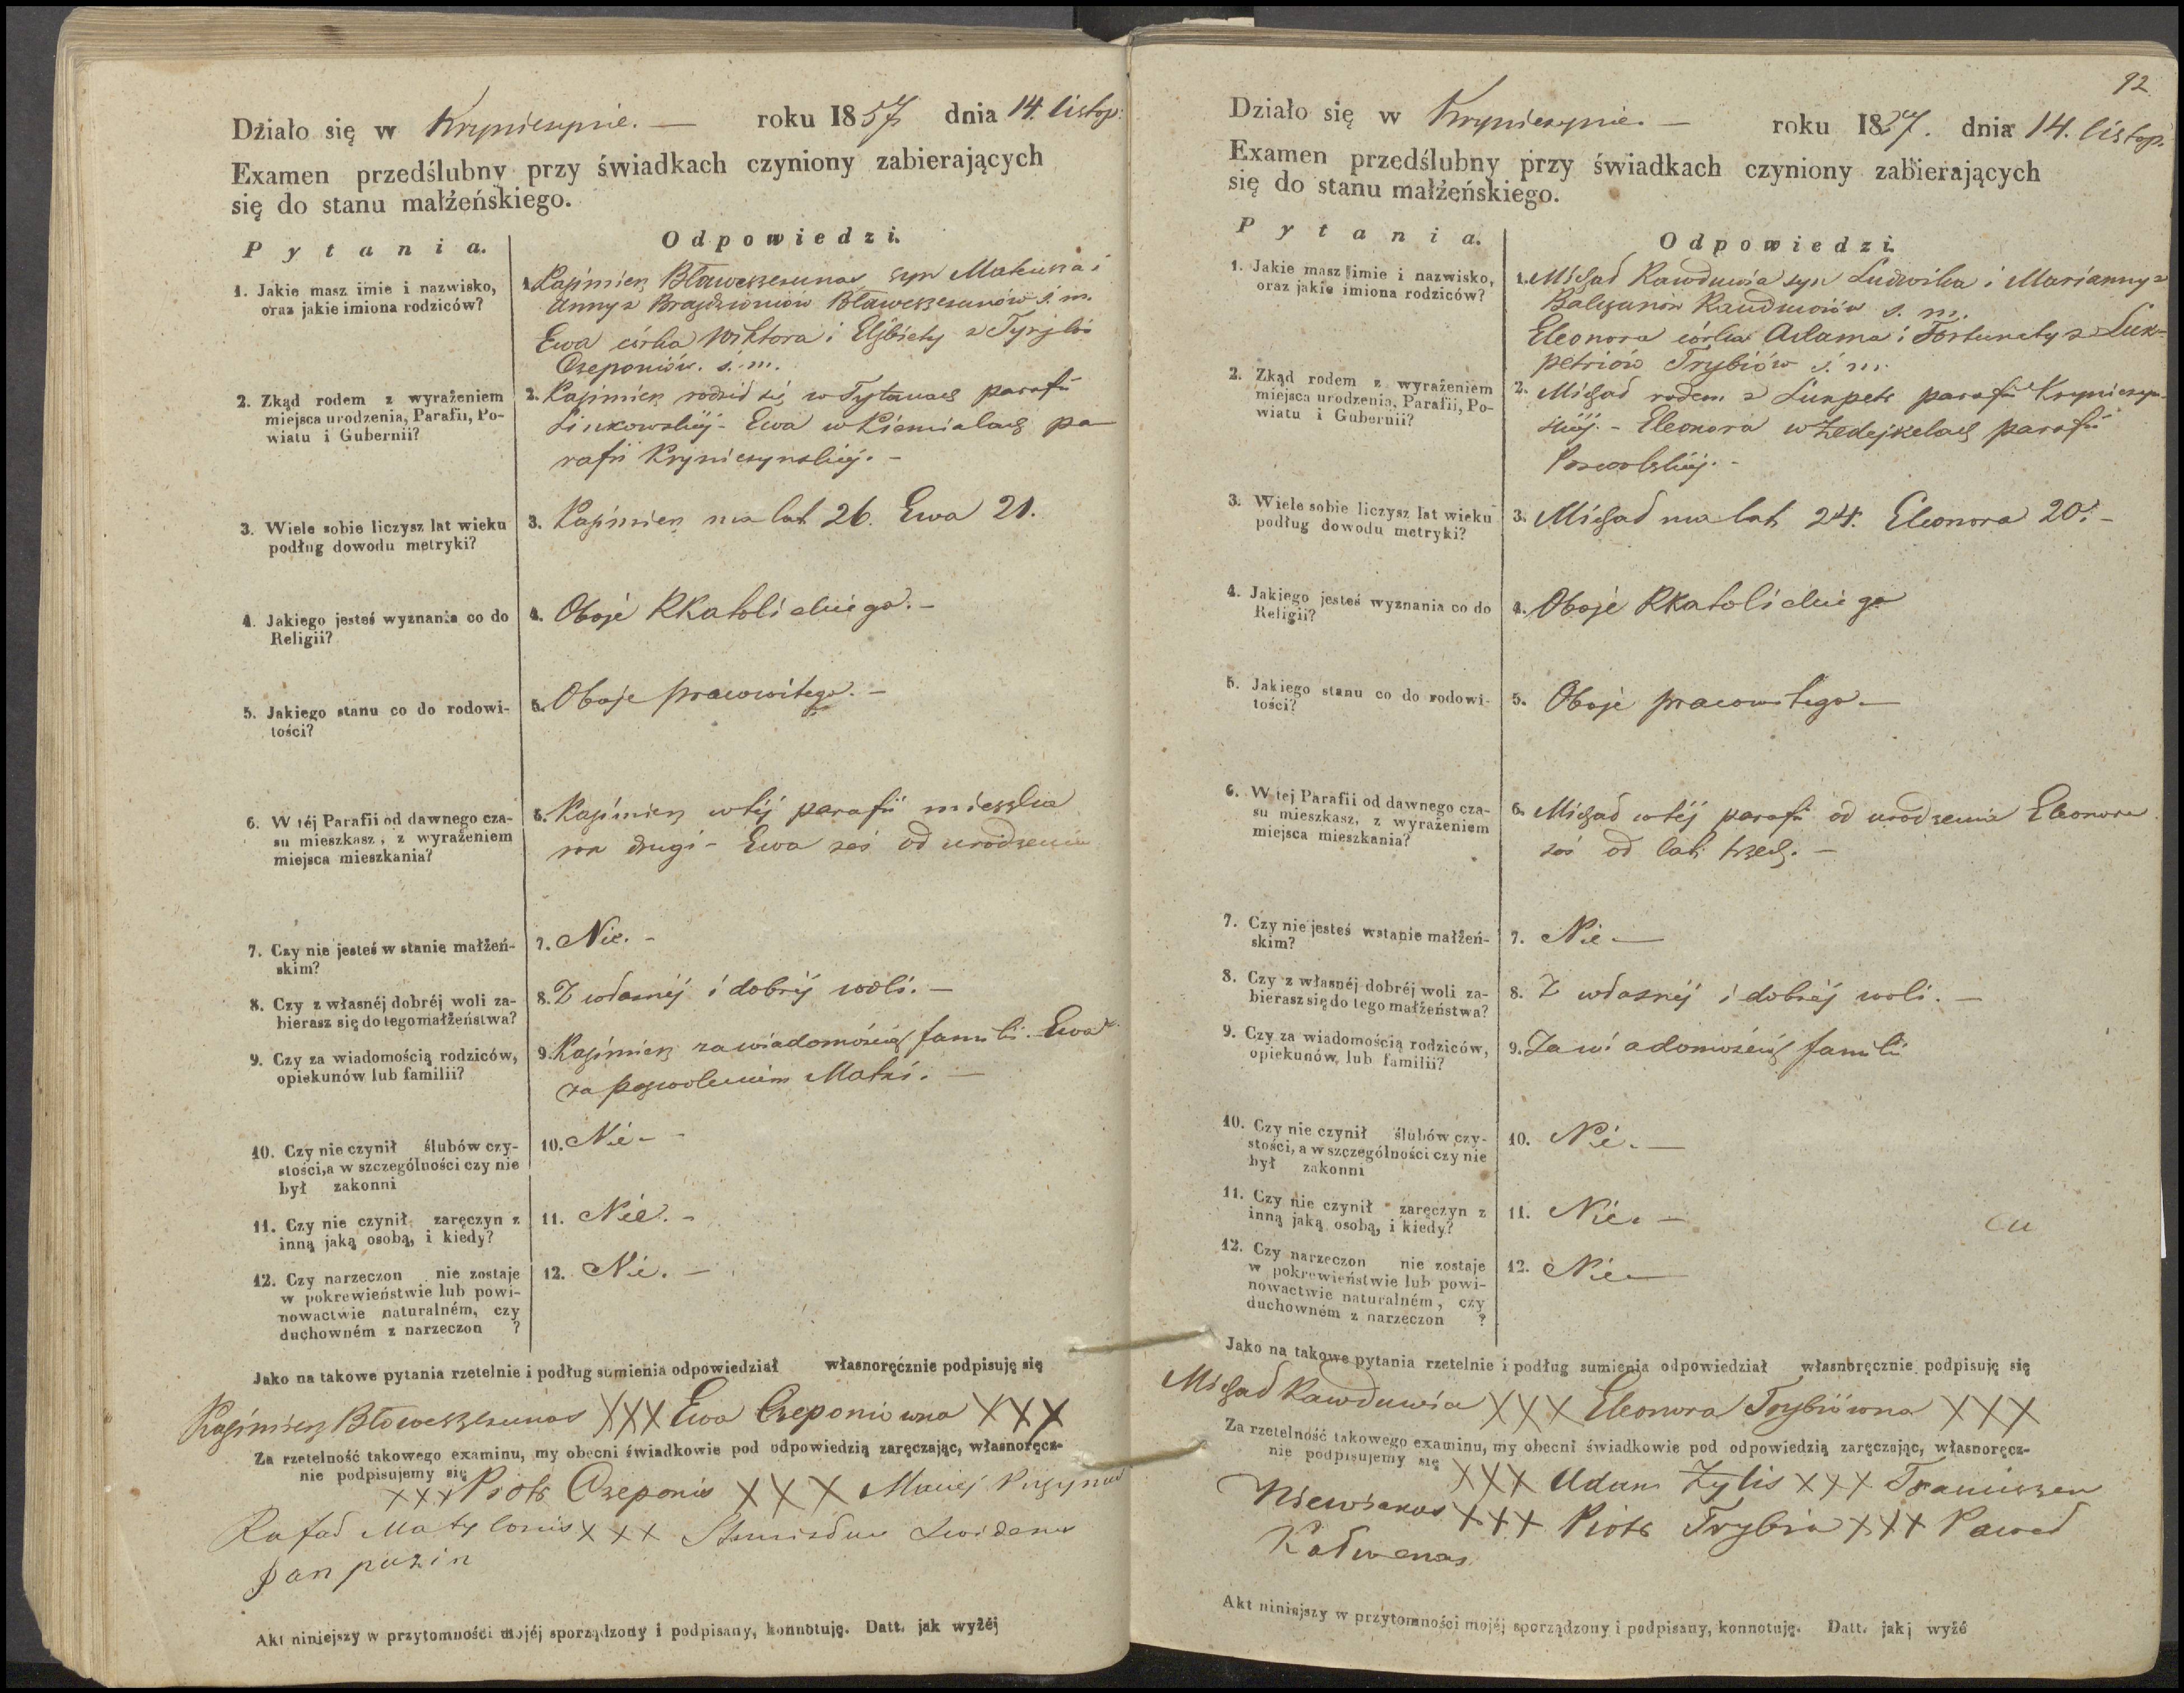 Działo się w Krynieczynie. — roku 1857 dnia 14. listop:
Examen przedślubny przy świadkach czyniony zabierających
się do stanu małżeńskiego.
Pytania.
Odpowiedzi.
1. Jakie masz imie i nazwisko,
oraz jakie imiona rodziców?
1. Kazimierz Bławeszczunas syn Mateusza i
Anny z Brazdzioniów Bławeszczunów ś. m.
Ewa córka Wiktora i Elżbiety z
Czeponiów. ś. m.
2. Zkąd rodem z wyrażeniem
miejsca urodzenia, Parafii, Po-
wiatu i Gubernii?
2. Kazimierz rodził się w Tytanach parafii
Linkowskiéj - Ewa w Kiemialach pa
rafii Krynieczynskiéj. -
3. Wiele sobie liczysz lat wieku
podług dowodu metryki?
3. Kazimierz ma lat 26. Ewa 21.
4. Jakiego jesteś wyznania co do
Religii?
4. Oboje RKatolickiego. -
5. Jakiego stanu co do rodowi-
tości?
5. Oboje pracowitego. -
6. W téj Parafii od dawnego cza-
su mieszkasz, z wyrażeniem
miejsca mieszkania?
6. Kazimierz w téj parafii mieszka
rok drugi - Ewa zaś od urodzenia
7. Czy nie jesteś w stanie małżeń-
skim?
7. Nie. -
8. Czy z własnéj dobréj woli za-
bierasz się do tego małżeństwa?
8. Z własnéj i dobréj woli. —
9. Czy za wiadomością rodziców,
opiekunów lub familii?
9. Kazimierz za wiadomością familii. Ewa
za pozwoleniem Matki. —
10. Czy nie czynił ślubów czy-
stości, a w szczególności czy nie
był zakonni
10. Nie -
11. Czy nie czynił zaręczyn z
inną jaką osobą, i kiedy?
11. Nie. -
12. Czy narzeczon nie zostaje
w pokrewieństwie lub powi-
nowactwie naturalném, czy
duchowném z narzeczon ?
12. Nie. —
Jako na takowe pytania rzetelnie i podług sumienia odpowiedział własnoręcznie podpisuję się
Kazimierz Bławeszczunas XXX Ewa Czeponiowna XXX
Za rzetelność takowego examinu, my obecni świadkowie pod odpowiedzią zaręczając, własnoręcz-
nie podpisujemy się
XXX Piotr Czeponis XXX Maciej
Rafał Matylonis XXX
Jan puzin
Akt niniejszy w przytomności mojéj sporządzony i podpisany, konnotuję. Datt. jak wyżéj
92
Działo się w Krynieczynie. — roku 1857. dnia 14. listop.
Examen przedślubny przy świadkach czyniony zabierających
się do stanu małżeńskiego.
Pytania.
Odpowiedzi.
1. Jakie masz imie i nazwisko,
oraz jakie imiona rodziców?
1. Michał Rawduwia syn Ludwika i Marianny z
Balczunów Rawduwiów ś. m.
Eleonora córka Adama i Fortunaty z Luk-
petriów Trybiów ś. m.
2. Zkąd rodem z wyrażeniem
miejsca urodzenia, Parafii, Po-
wiatu i Gubernii?
2. Michał rodem z parafii Krynieczyn-
skiéj. - Eleonora w Zedejkelach parafii
Poswolskiéj. -
3. Wiele sobie liczysz lat wieku
podług dowodu metryki?
3. Michał ma lat 24. Eleonora 20. -
4. Jakiego jesteś wyznania co do
Religii?
4. Oboje RKatolickiego
5. Jakiego stanu co do rodowi-
tości?
5. Oboje pracowitego —
6. W tej Parafii od dawnego cza-
su mieszkasz, z wyrażeniem
miejsca mieszkania?
6. Michał w téj parafii od urodzenia Eleonora
zaś od lat trzech. —
7. Czy nie jesteś w stanie małżeń-
skim?
7. Nie —
8. Czy z własnéj dobréj woli za-
bierasz się do tego małżeństwa?
8. Z własnéj i dobréj woli. —
9. Czy za wiadomością rodziców,
opiekunów, lub familii?
9. Za wiadomością familii
10. Czy nie czynił ślubów czy-
stości, a w szczególności czy nie
był zakonni
10. Nie. —
11. Czy nie czynił zaręczyn z
inną jaką osobą, i kiedy?
11. Nie. —
12. Czy narzeczon nie zostaje
w pokrewieństwie lub powi-
nowactwie naturalném, czy
duchowném z narzeczon ?
12. Nie —
Jako na takowe pytania rzetelnie i podług sumienia odpowiedział własnoręcznie podpisuję się
Michał Rawduwia XXX Eleonora Trybiówna XXX
Za rzetelność takowego examinu, my obecni świadkowie pod odpowiedzią zaręczając, własnoręcz-
nie podpisujemy się
XXX Adam Zylis XXX Franciszek
Niewiakas XXX Piotr Trybia XXX Paweł
Kalwenas
Akt niniejszy w przytomności mojéj sporządzony i podpisany, konnotuję. Datt. jak j wyżé